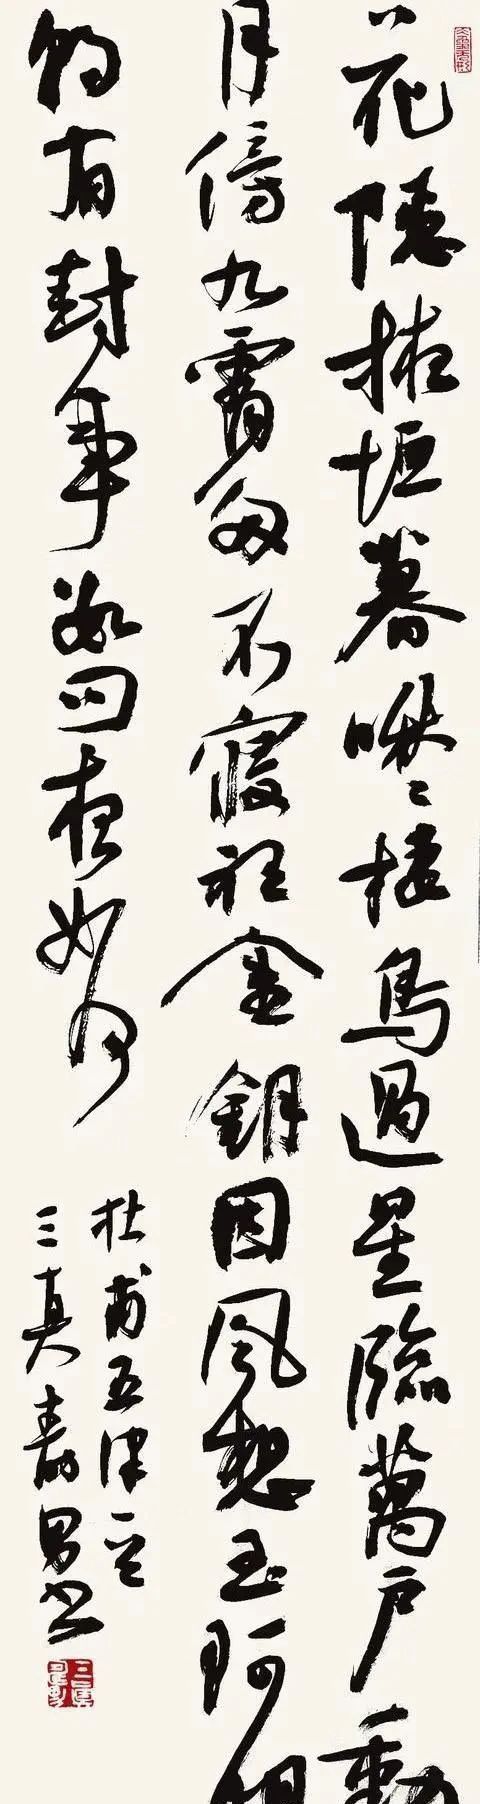 花隱掖垣暮啾々棲鳥過星臨萬户動
月傍九霄多不寝聽金鈅因風想玉珂明
朝有封事數問夜如何
杜甫五律一首
三真 男書